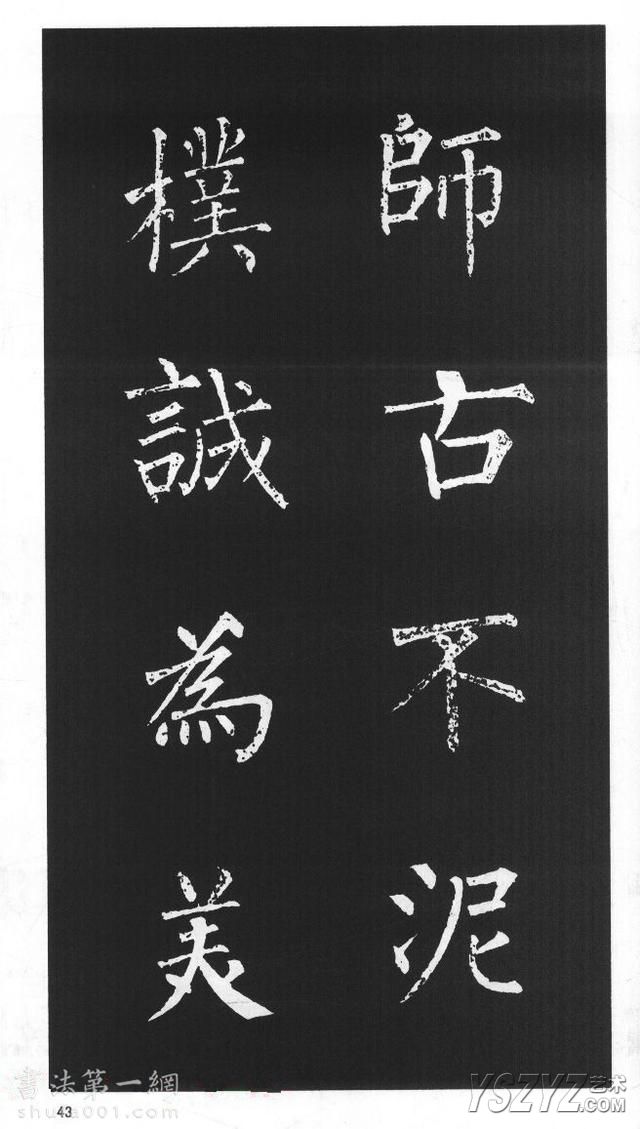 師古不泥
樸誠為美
書法第一網
shufa001.com
43
YSZYZ艺术
.COM